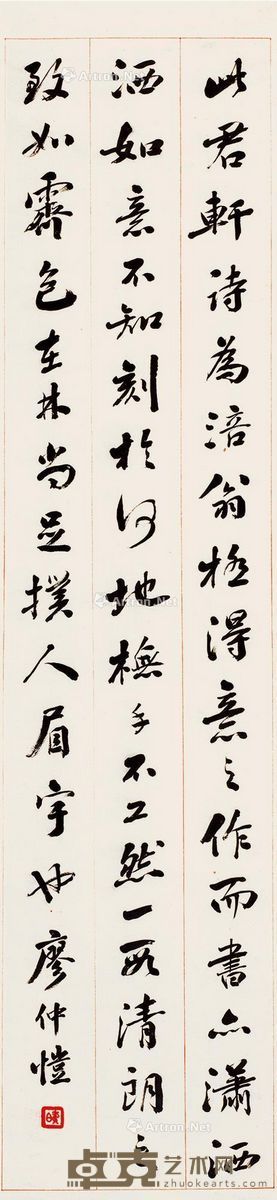 此君軒詩為涪翁極得意之作而書亦瀟洒
洒如意不知刻於何地橅手不工然一段清朗之
致如霽色在林尚足撲人眉宇也廖仲愷
Artron.Net
卓克艺术网
www.zhuokearts.com